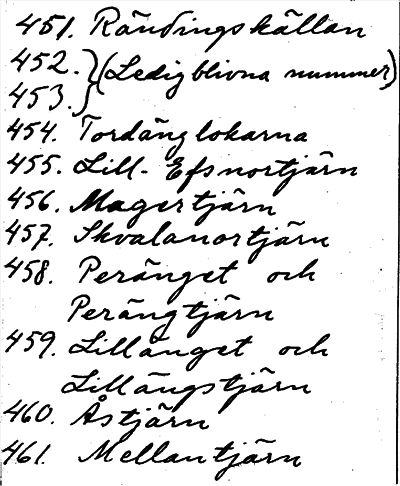 451. Rändingskällan
452. } (Ledigblivna nummer)
453.
454. Tordänglokarna
455. Lill-Efsnortjärn
456. Magertjärn
457. Skvalanortjärn
458. Peränget och
Perängtjärn
459. Lillänget och
Lillängstjärn
460. Åstjärn
461. Mellantjärn